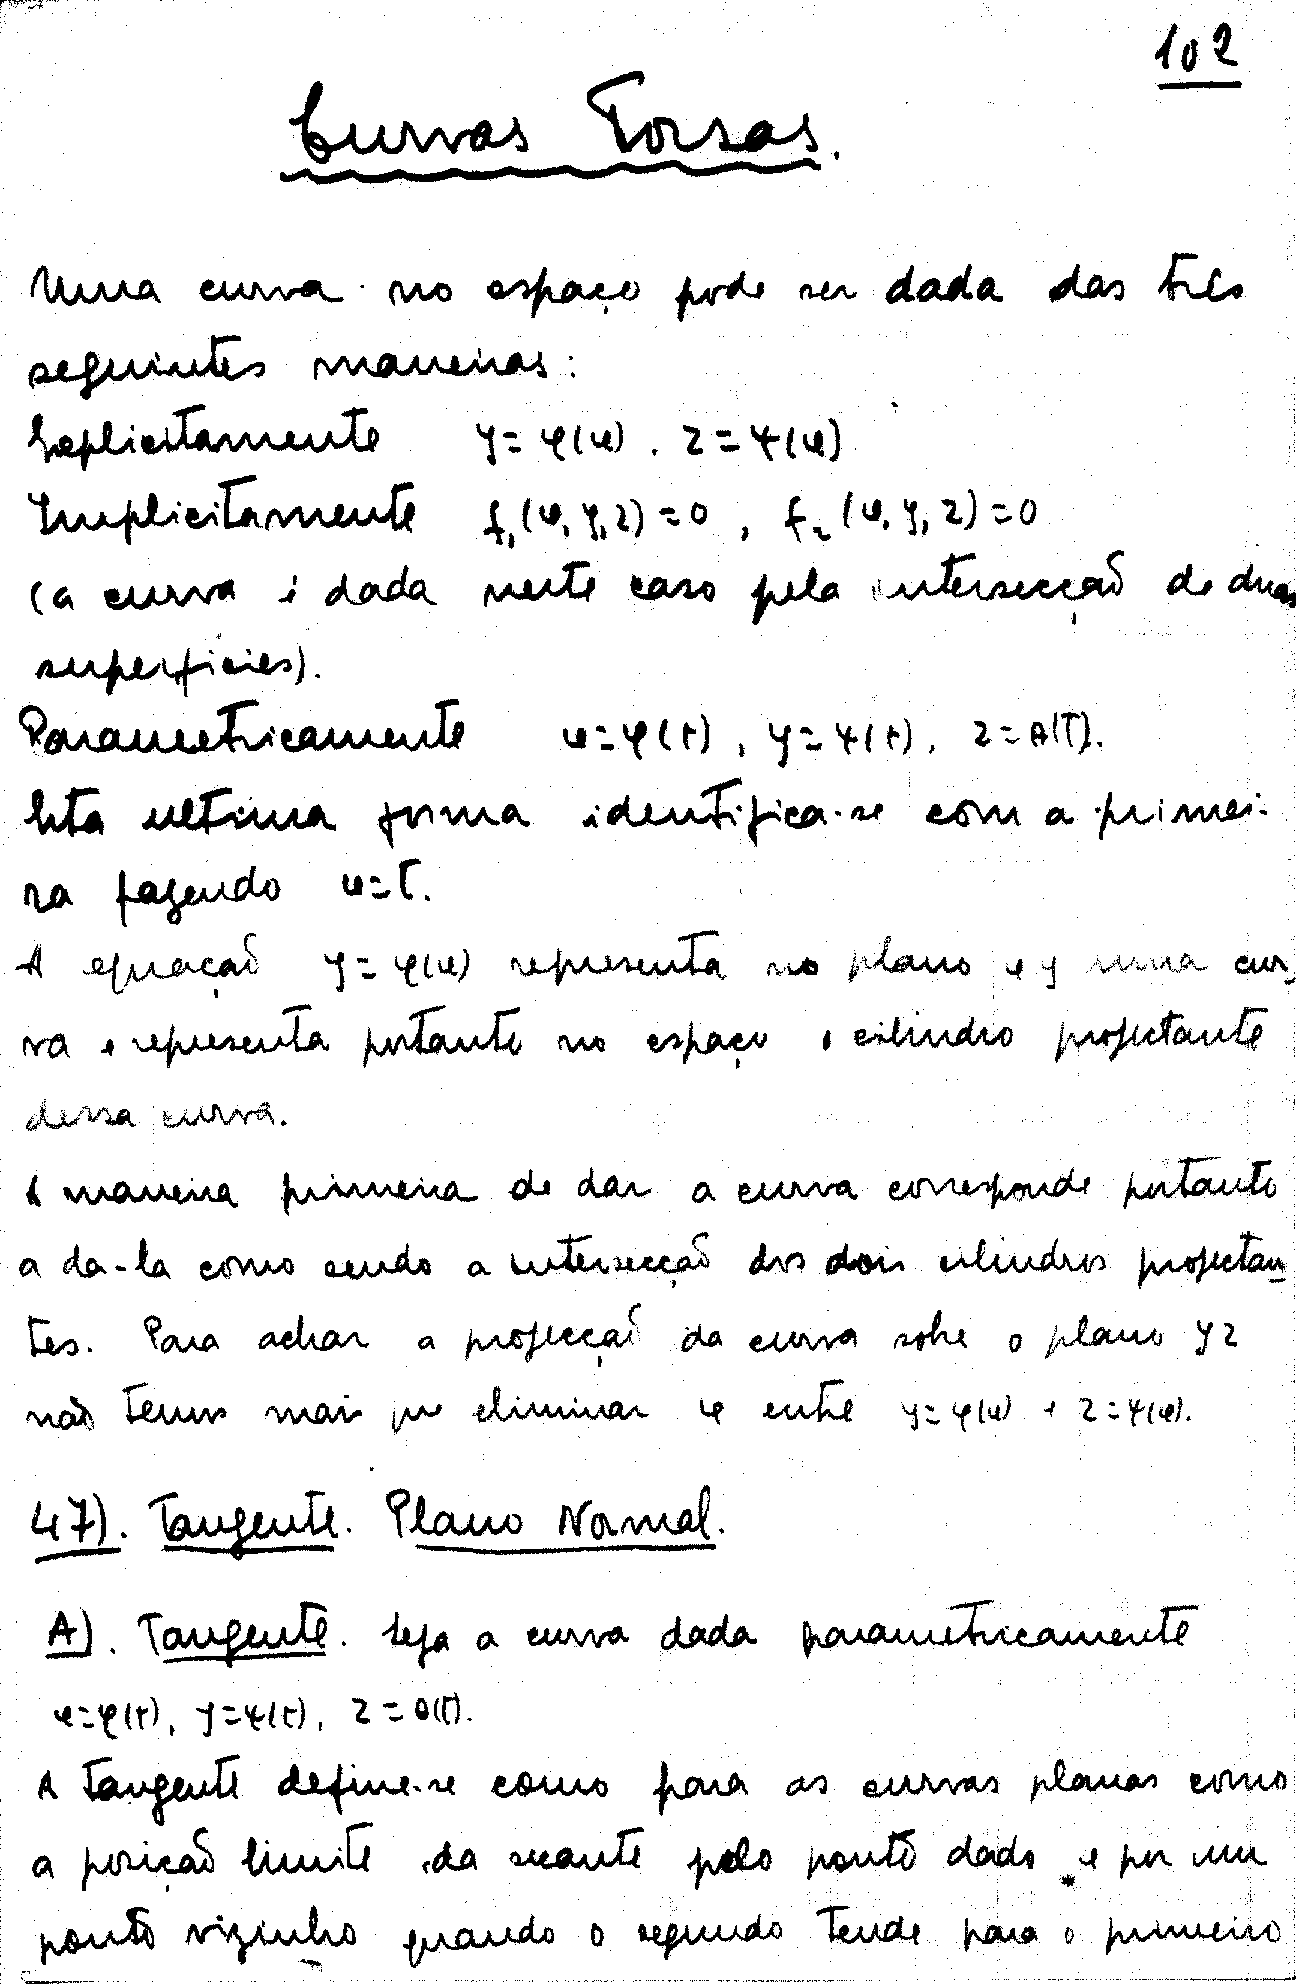 102
Curvas Torsas.
Uma curva no espaço pode ser dada das três
seguintes maneiras:
Explicitamente y=φ(x). z=ψ(x)
Implicitamente f₁(x,y,z)=0, f₂(x,y,z)=0
(a curva é dada neste caso pela intersecção de duas
superficies).
Parametricamente x=φ(t), y=ψ(t), z=θ(t).
Esta ultima forma identifica-se com a primei-
ra fazendo x=t.
A equação y=φ(x) representa no plano xy uma cur-
va e representa portanto no espaço o cilindro projectante
dessa curva.
A maneira primeira de dar a curva corresponde portanto
a da-la como sendo a intersecção dos dois cilindros projectan
tes. Para achar a projecção da curva sobre o plano yz
não temos mais que eliminar x entre y=φ(x) e z=ψ(x).
47). Tangente. Plano Normal.
A). Tangente. Seja a curva dada parametricamente
x=φ(t), y=ψ(t), z=θ(t).
A tangente define-se como para as curvas planas como
a posição limite da secante pelo ponto dado e por um
ponto vizinho quando o segundo tende para o primeiro